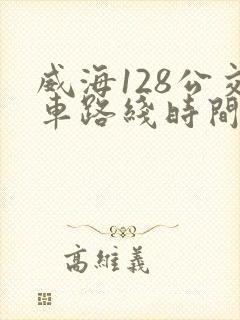 威海128公交
車路綫時間
高維義